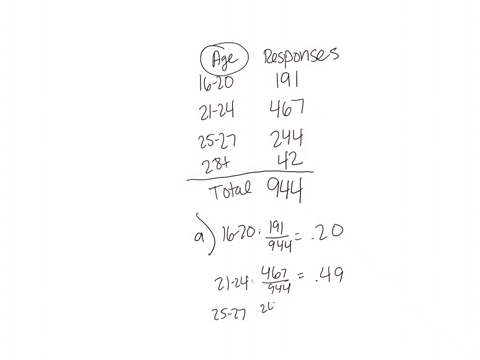 Age Responses
16-20 191
21-24 467
25-27 244
28+ 42
Total 944
a) 16-20: 191/944 = .20
21-24: 467/944 = .49
25-27 24